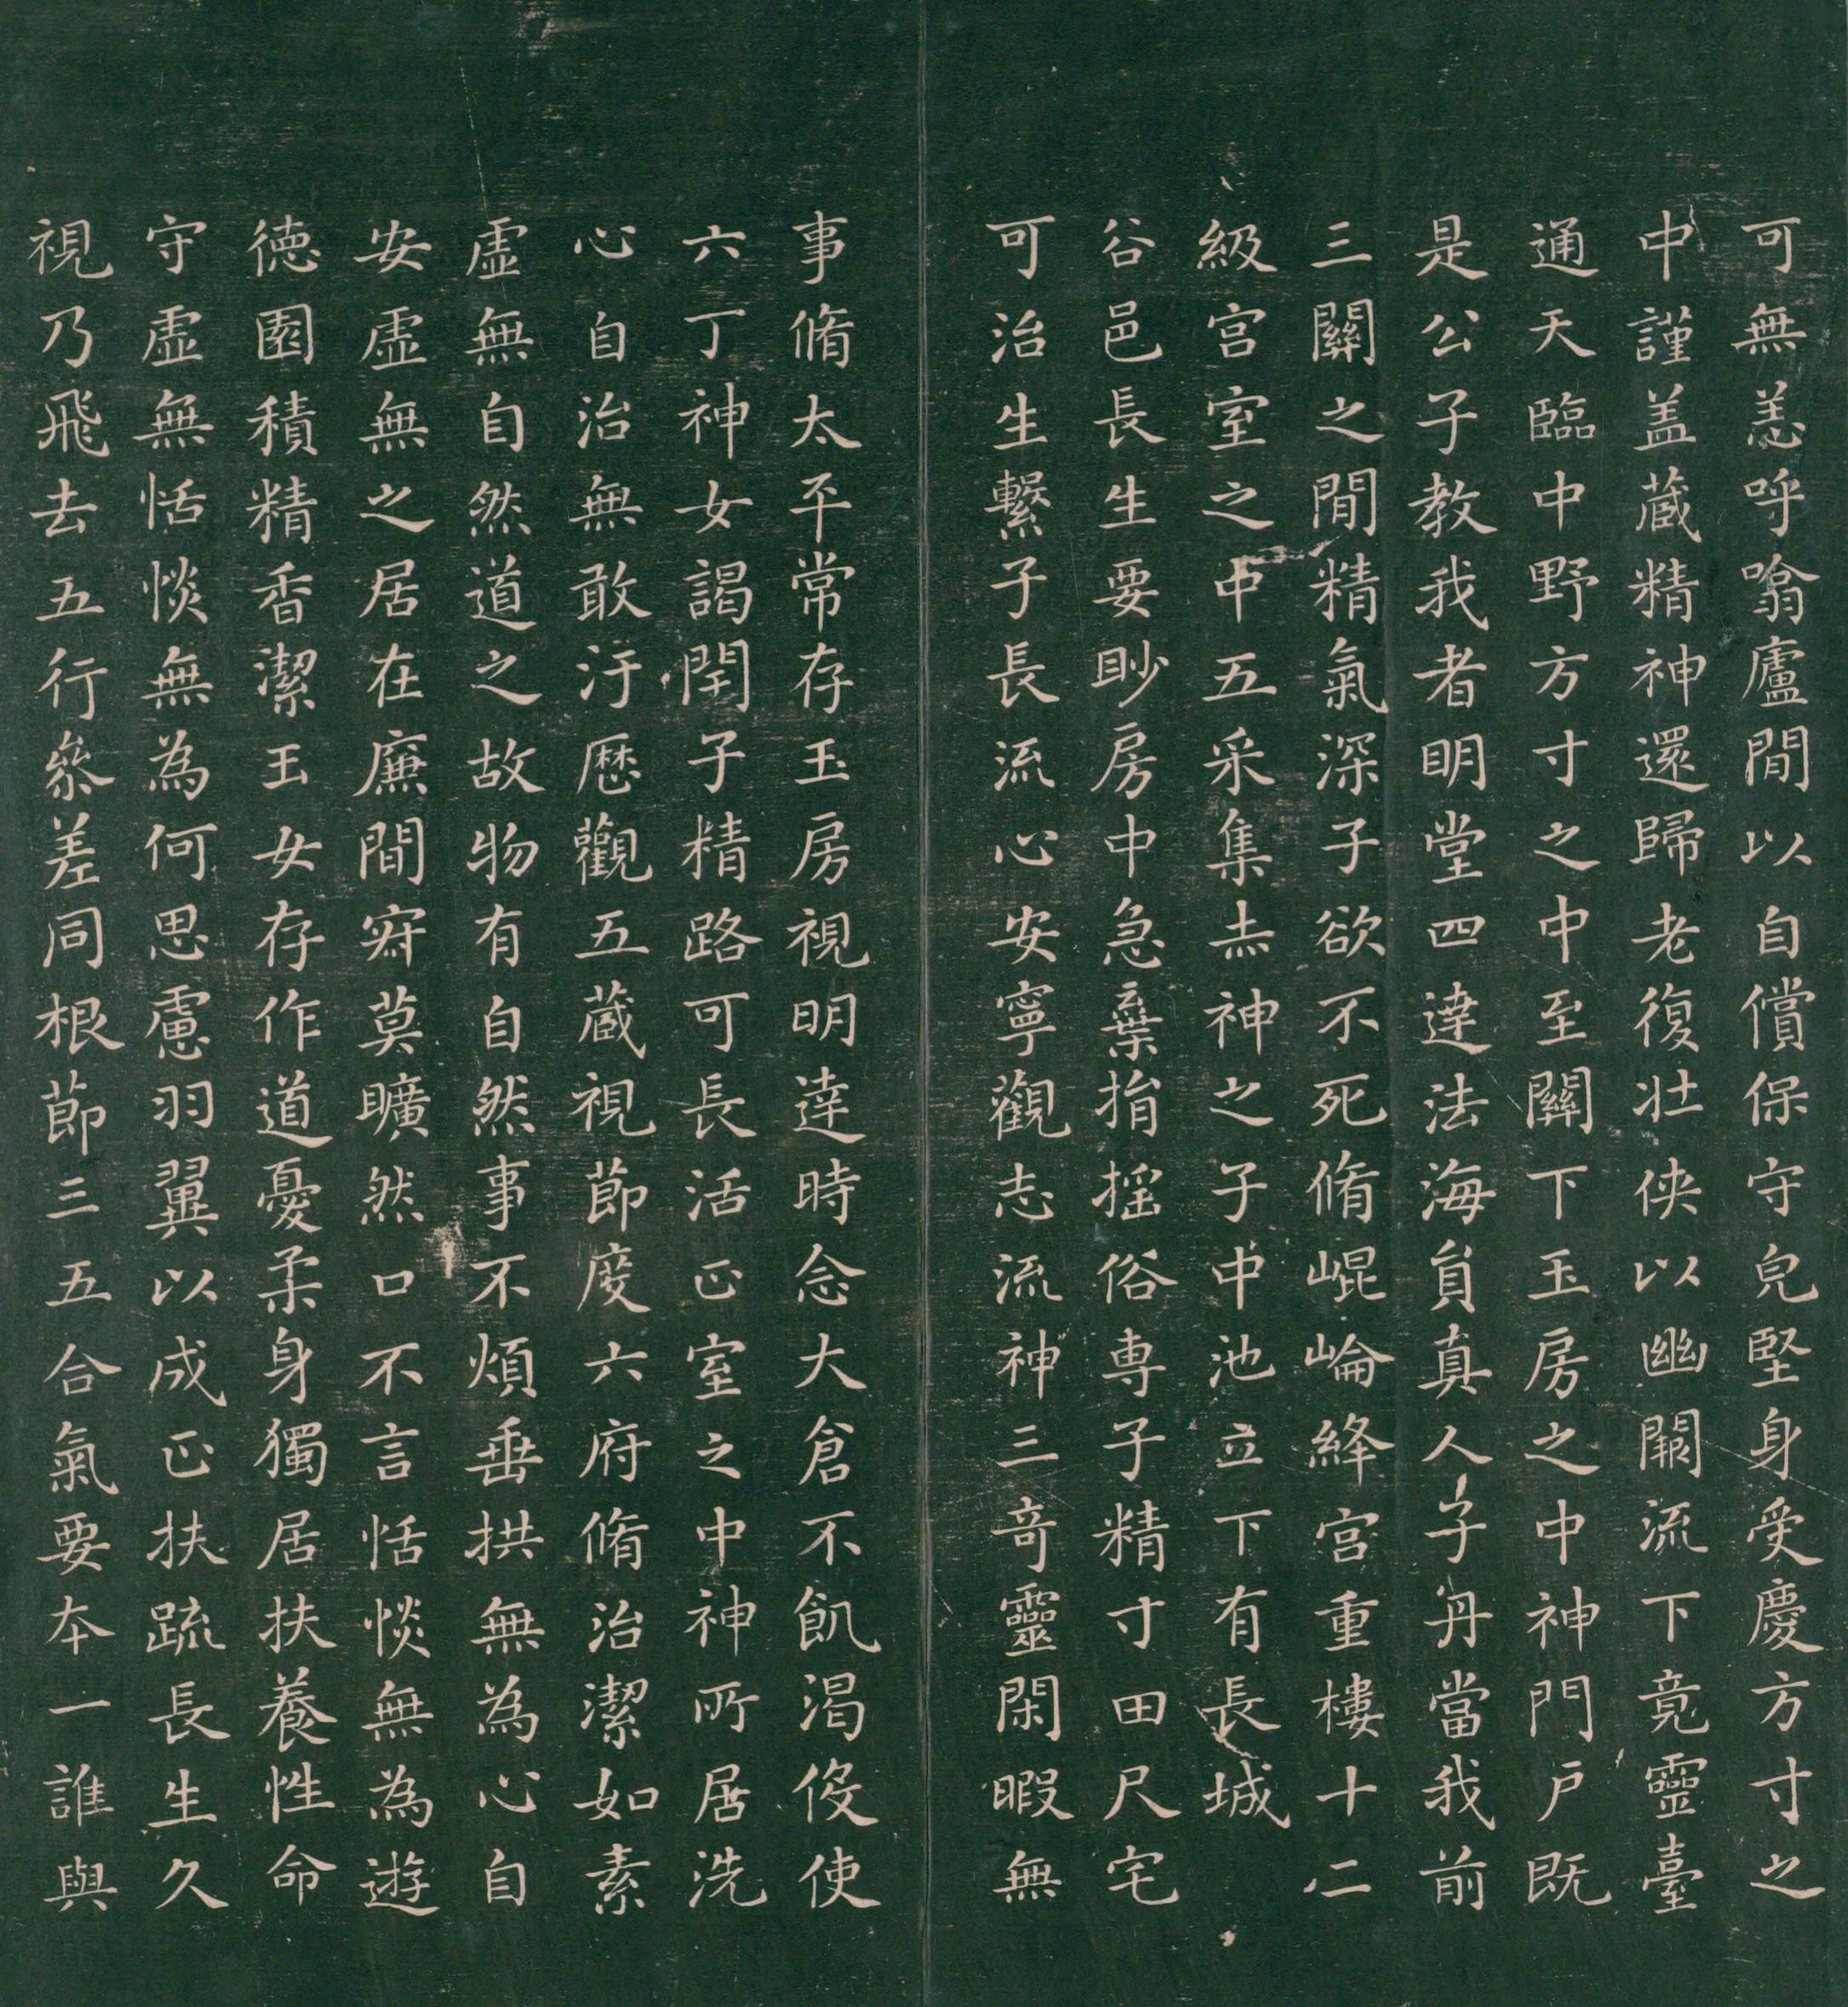 可無恙呼噏廬間以自償保守皃堅身受慶方寸之
中謹盖藏精神還歸老復壯俠以幽闕流下竟靈臺
通天臨中野方寸之中至關下玉房之中神門戶既
是公子教我者明堂四達法海負真人子丹當我前
三關之間精氣深子欲不死脩崐崘絳宮重樓十二
級宮室之中五采集赤神之子中池立下有長城
谷邑長生要眇房中急棄捐揺俗専子精寸田尺宅
可治生繫子長流心安寧觀志流神三竒靈閑暇無
事脩太平常存玉房視明達時念大倉不飢渴役使
六丁神女謁閇子精路可長活正室之中神所居洗
心自治無敢汙歷觀五藏視節度六府脩治潔如素
虛無自然道之故物有自然事不煩垂拱無為心自
安虛無之居在廉間寂莫曠然口不言恬惔無為遊
徳園積精香潔玉女存作道憂柔身獨居扶養性命
守虛無恬惔無為何思慮羽翼以成正扶疏長生久
視乃飛去五行參差同根節三五合氣要本一誰與